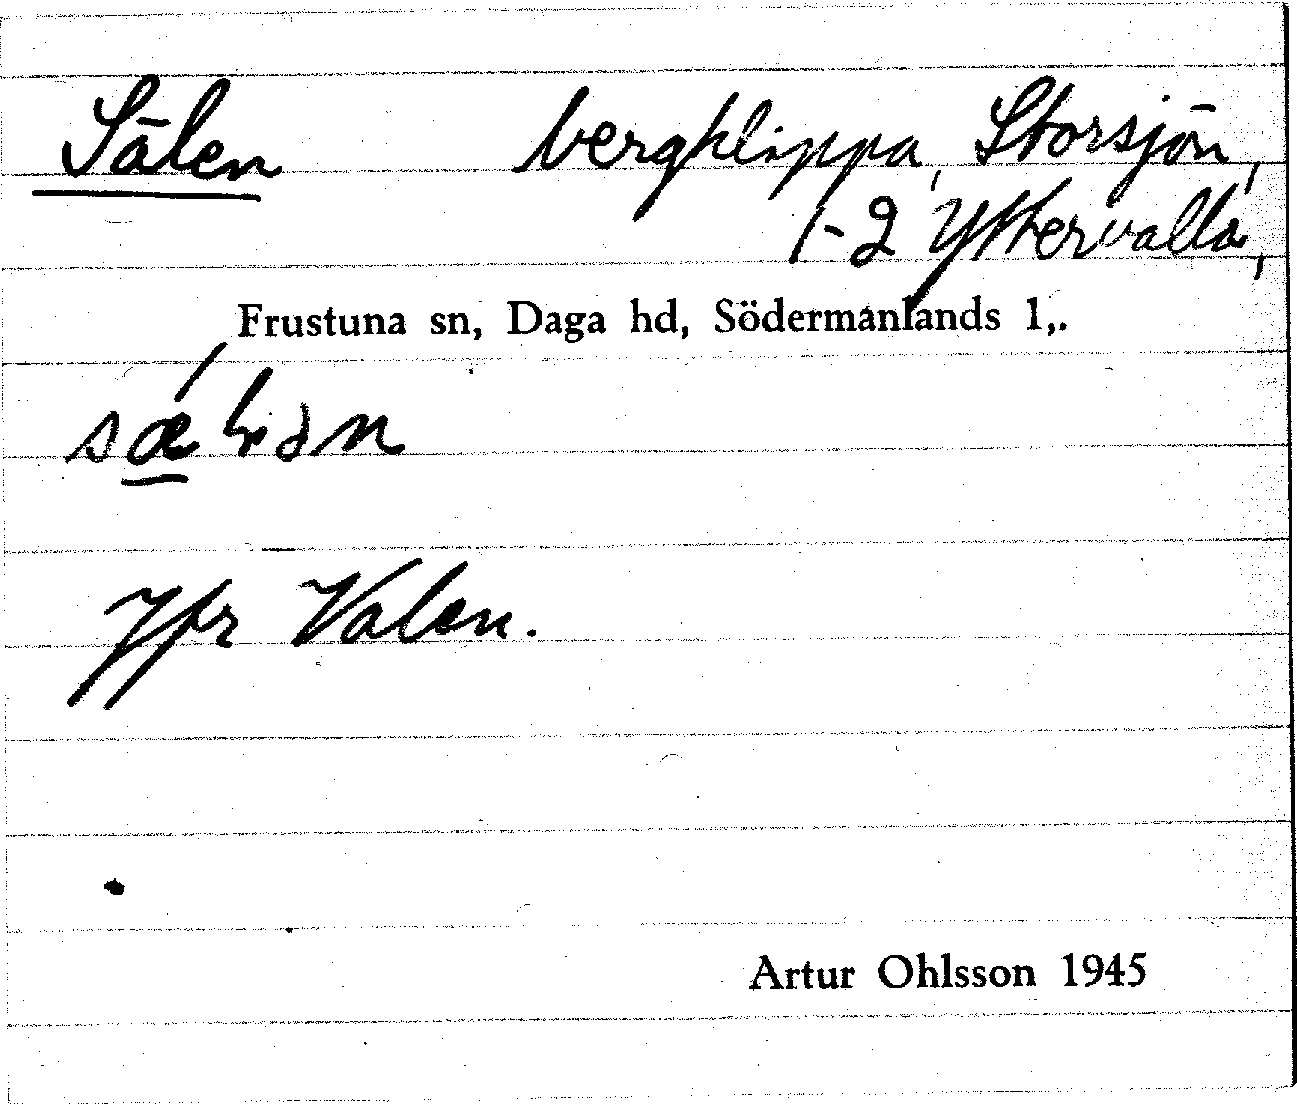 Sälen bergklippa, Storsjön,
1-2 Yttervalla,
Frustuna sn, Daga hd, Södermanlands l,.
Jfr Valen.
Artur Ohlsson 1945